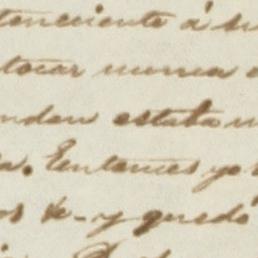 tenciente á su
tocar nunca
ndan estaba
a. Entonces yo
os te-y quedó